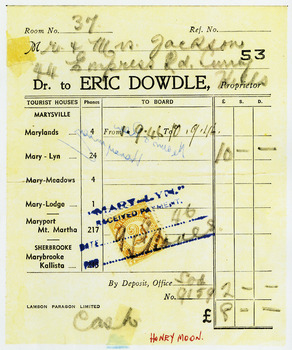 Room No. 37 Ref. No.
Mr & Mrs. Jackson
44 Empress Rd. Surrey Hills
53
Dr. to ERIC DOWDLE, Proprietor
TOURIST HOUSES Phones TO BOARD £ S D
MARYSVILLE
Marylands 4 From 1.9.46 To 7.9.46.
Mary-Lyn 24 10 - -
Mary-Meadows 4
Mary-Lodge 1
Maryport
Mt. Martha 217
SHERBROOKE
Marybrooke
Kallista
"MARY-LYN."
RECEIVED PAYMENT.
DATE
By Deposit, Office
No. 9159 2 - -
LAMSON PARAGON LIMITED
£ 8 - -
Cash
HONEY MOON.